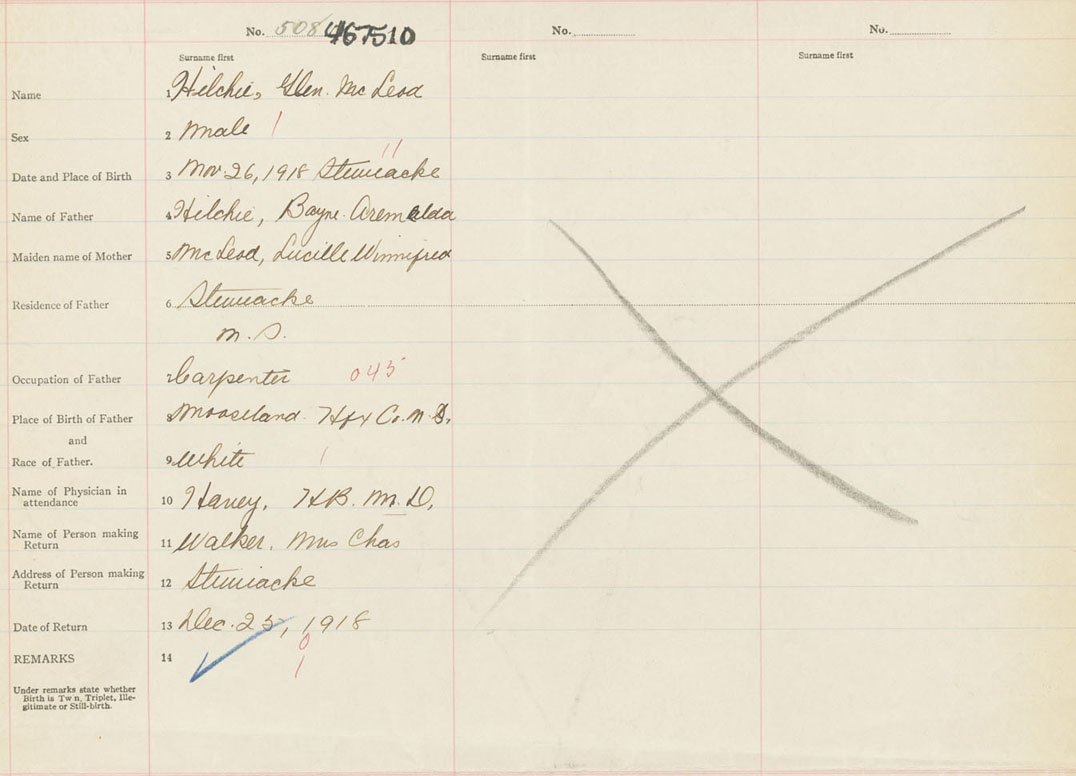 No. 508 467510 No. No.
Surname first Surname first Surname first
Name 1 Hilchie, Glen. McLeod
Sex 2 Male 1
11
Date and Place of Birth 3 Nov. 26, 1918 Stewiacke
Name of Father 4 Hilchie, Bayne.
Maiden name of Mother 5 McLeod, Lucille Winnifred
Residence of Father 6 Stewiacke
N.S.
Occupation of Father 7 Carpenter 045
Place of Birth of Father 8 Mooseland. Hfx Co. N.S.
and
Race of Father. 9 White 1
Name of Physician in
attendance 10 H.B. M.D.
Name of Person making
Return 11 Walker. Mrs Chas
Address of Person making
Return 12 Stewiacke
Date of Return 13 Dec. 25, 1918
0
REMARKS 14 1
Under remarks state whether
Birth is Tw n, Triplet, Ille-
gitimate or Still-birth.